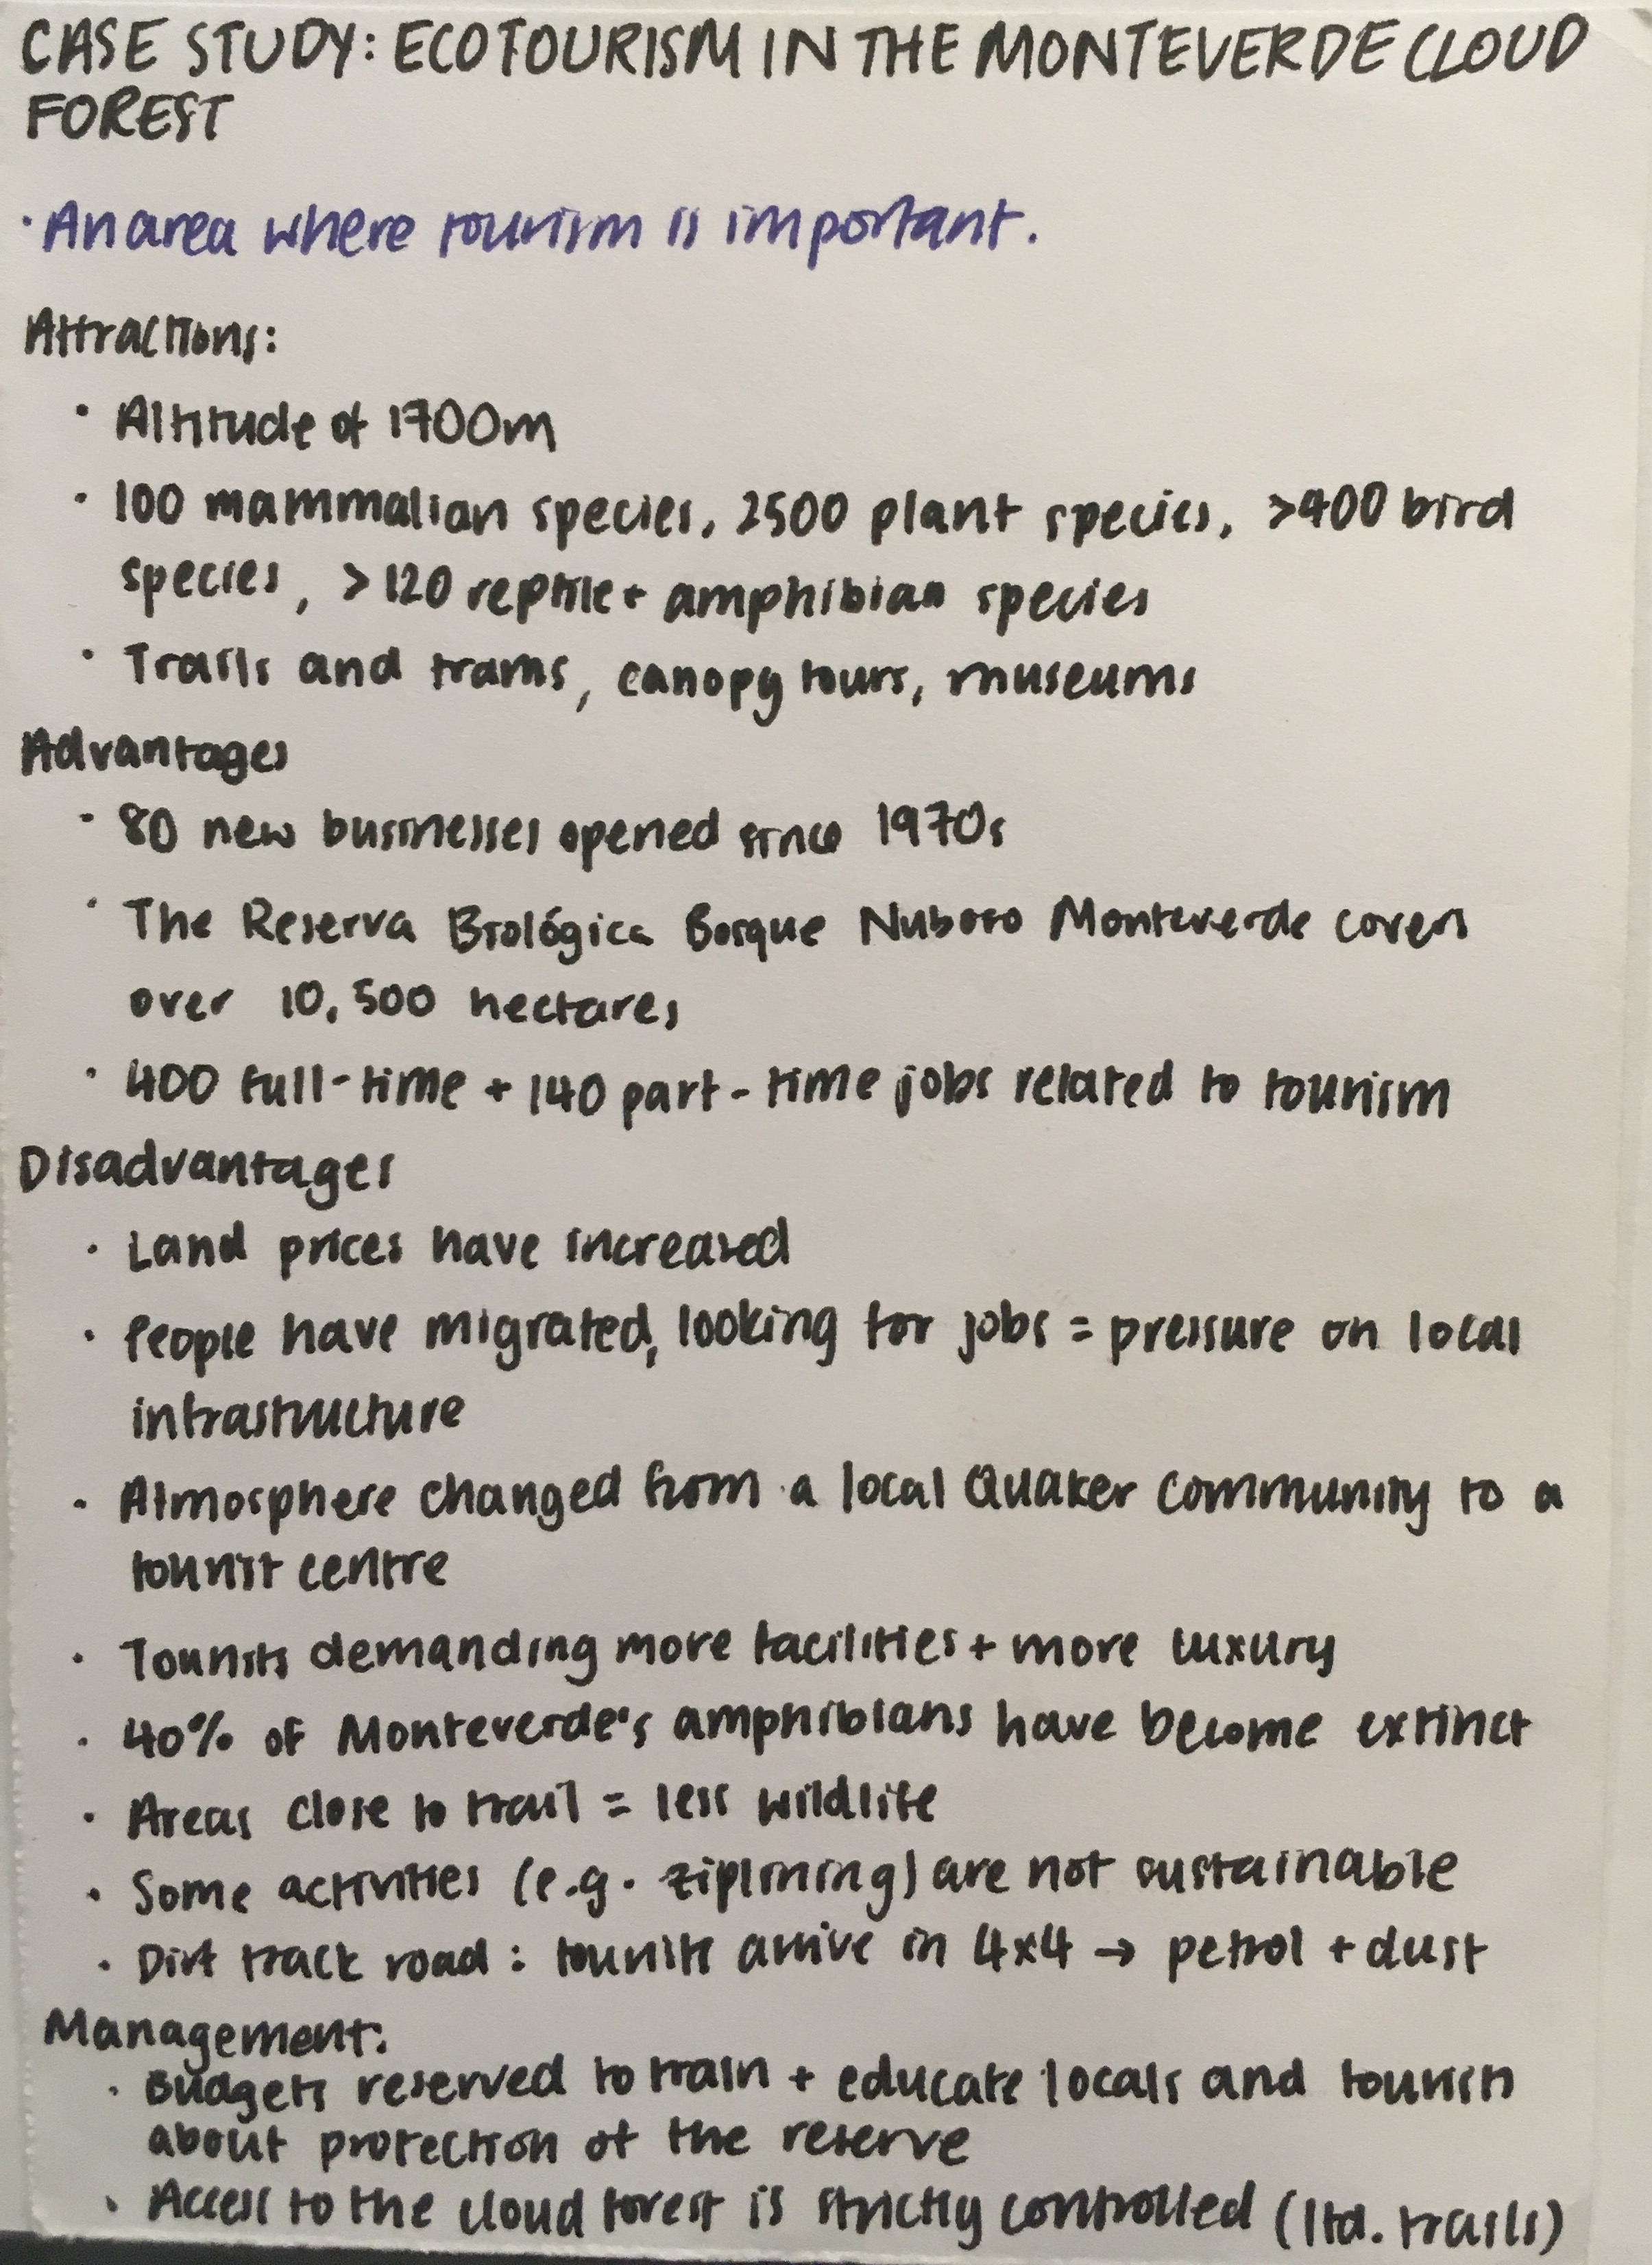 CASE STUDY: ECOTOURISM IN THE MONTEVERDE CLOUD
FOREST
· An area where tourism is important.
Attractions:
· Altitude of 1700m
· 100 mammalian species, 2500 plant species, >400 bird
species, >120 reptile + amphibian species
· Trails and trams, canopy tours, museums
Advantages
· 80 new businesses opened since 1970s
· The Reserva Biológica Bosque Nuboso Monteverde covers
over 10,500 hectares
· 400 full-time + 140 part-time jobs related to tourism
Disadvantages
· Land prices have increased
· People have migrated, looking for jobs = pressure on local
infrastructure
· Atmosphere changed from a local Quaker community to a
tourist centre
· Tourists demanding more facilities + more luxury
· 40% of Monteverde's amphibians have become extinct
· Areas close to trail = less wildlife
· Some activities (e.g. ziplining) are not sustainable
· Dirt track road: tourists arrive in 4x4 → petrol + dust
Management:
· Budgets reserved to train + educate locals and tourists
about protection of the reserve
· Access to the cloud forest is strictly controlled (ltd. trails)